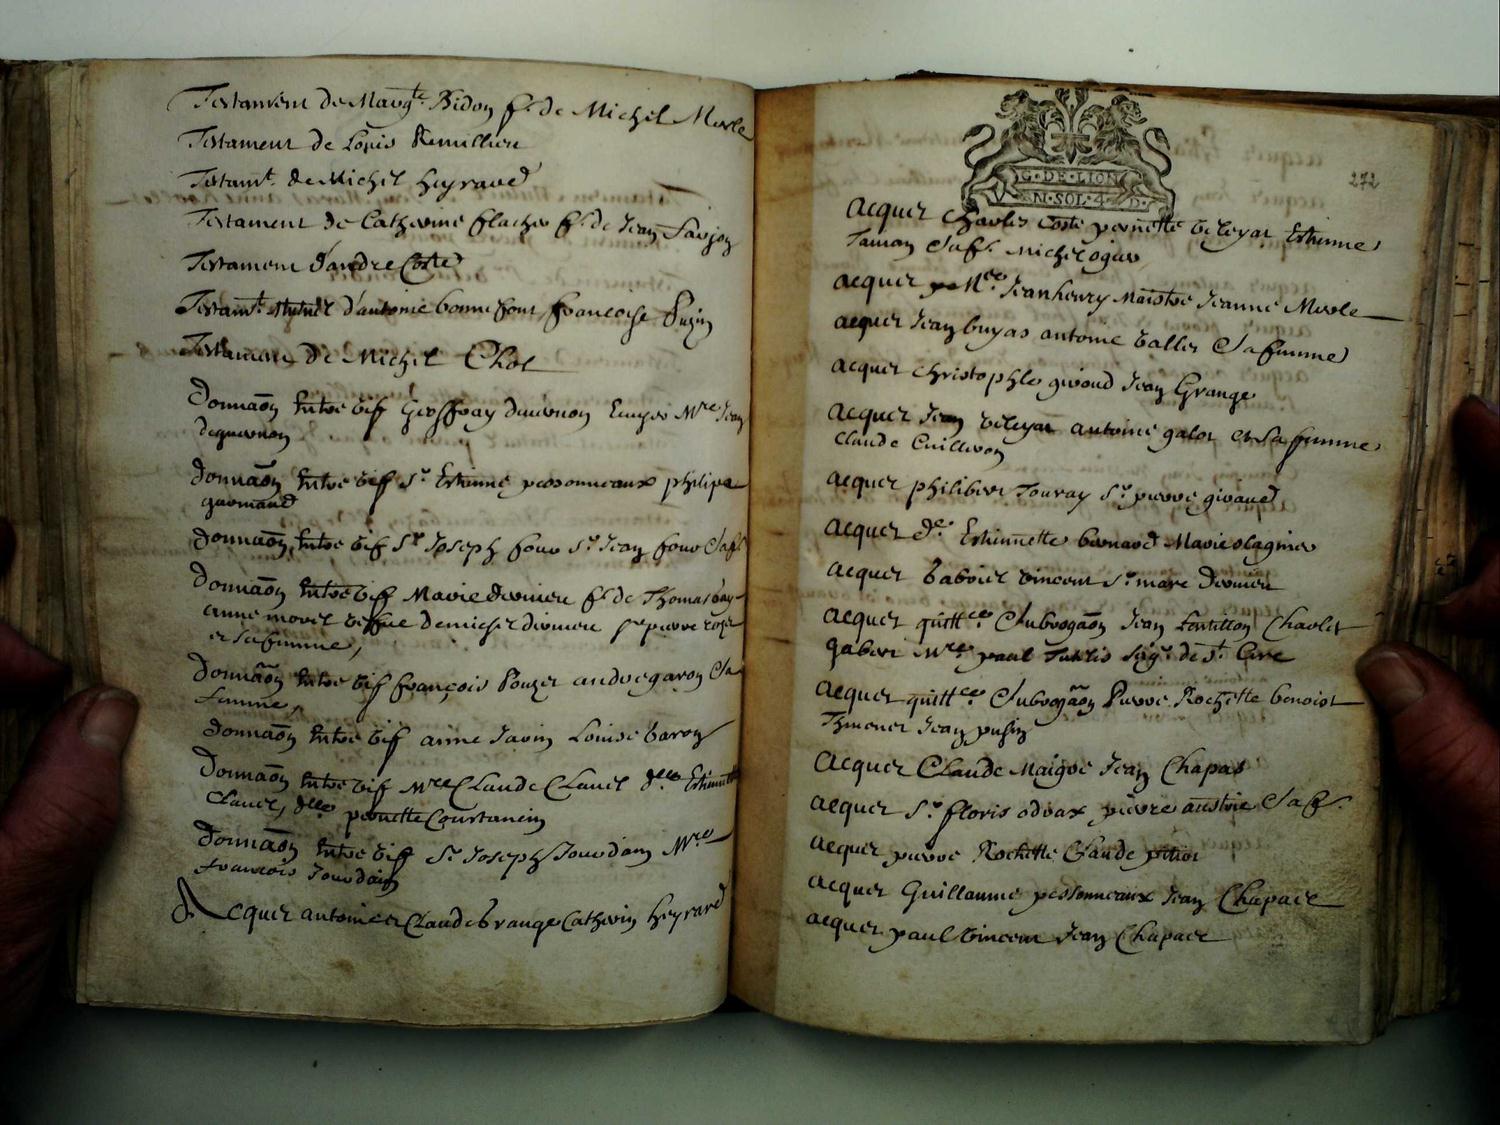 Testament de Margte Bidon fe de Michel Merle
Testament de Louis Remillieu
Testamt de Michel heyraud
Testament de Catherine flacher fe de Jean Farjon
Testament d'andre Coste
Testamt mutuel d'antoine bonnefont, francoise Puzin
Testament de Michel Chol
Donnaon entre vif Geoffray duvernon Ecuyer Mre Jean
deguernon
Donnaon entre vif Sr Estienne pessonneaux philipe
guernand
Donnaon entre vif Sr Joseph four Sr Jean four Safe
Donnaon entre vif Marie dervieu fe de Thomas bay
anne morel veffue de michel dervieu Sr pierre roge
et sa femme,
Donnaon entre vif françois Pouzet andre garon Sa
femme,
Donnaon entre vif anne Javin Louise baron
Donnaon entre vif Mre Claude Clavel dlle Estiennette
Clavel, dlle pernette Courtanin
Donnaon entre vif Sr Joseph Jourdain Mre
francois Jourdain
Acquet antoine et Claude Grange Catherin heyraud
G·DE·LION
V N·SOL·4·D·
272
acquet Charles Coste pernette veleyat Estienne
Tamon Safe Michel ogier
acquet Mre Jean henry Maistre Jeanne Merle
acquet Jean buyas antoine valler Sa femme
acquet Christophle giroud Jean Grange
acquet Jean veleyat antoine galot et Sa femme
Claude Cuilleron
acquet philibert Touray Sr pierre giraud
acquet de Estiennette bernard Marie olagnier
acquet Gabriel vincent Sr marc dervieu
acquet quittce Subrogaon Jean fontillon Charlet
gabert Mre paul Sigr de St Cire
acquet quittce Subrogaon Pierre Rochette benoist
Thimonet Jean puzin
acquet Claude Maigre Jean Chapas
acquet Sr floris odoax pierre austrie Safe
acquet pierre Rochette Claude pitiot
acquet Guillaume pessonneaux Jean Chapace
acquet paul vincent Jean Chapace